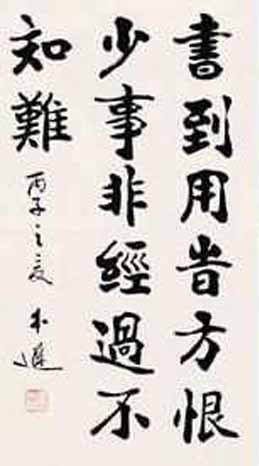 書到用旹方恨
少事非經過不
知難
丙子之夏